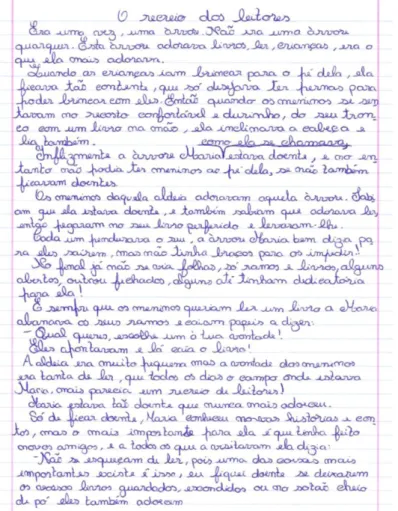 O recreio dos leitores
Era uma vez, uma árvore. Não era uma árvore
qualquer. Esta árvore adorava livros, ler, crianças, era o
que ela mais adorava.
Quando as crianças iam brincar para o pé dela, ela
ficava tão contente, que só desejava ter pernas para
poder brincar com eles. Então quando os meninos se sen
tavam no encosto confortável e durinho, do seu tron
co com um livro na mão, ela inclinava a cabeça e
lia também. como ela se chamava,
Infelizmente a árvore Maria estava doente, e no en
tanto não podia ter meninos ao pé dela, se não também
ficavam doentes.
Os meninos daquela aldeia adoravam aquela árvore. Sabi
am que ela estava doente, e também sabiam que adorava ler,
então pegaram no seu livro preferido e levaram-lhe.
Cada um pendurava o seu, a árvore Maria bem dizia pa
ra eles saírem, mas não tinha braços para os impedir!
No final já não se via folhas, só ramos e livros, alguns
abertos, outros fechados, alguns até tinham dedicatória
para ela!
E sempre que os meninos queriam ler um livro a Maria
abanava os seus ramos e caíam papéis a dizer:
- Qual queres, escolhe um à tua vontade!
Eles apontavam e lá caía o livro!
A aldeia era muito pequena mas a vontade dos meninos
era tanta de ler, que todos os dias o campo onde estava
Maria, mais parecia um recreio de leitores!
Maria estava tão doente que nunca mais adoeceu.
Só de ficar doente, Maria conheceu novas histórias e con
tos, mas o mais importante para ela é que tinha feito
novos amigos, e a todos os que a visitaram ela dizia:
- Não se esqueçam de ler, pois uma das coisas mais
importantes existe é isso, eu fiquei doente se deixarem
os vossos livros guardados, escondidos ou no sótão cheio
de pó eles também adoecem